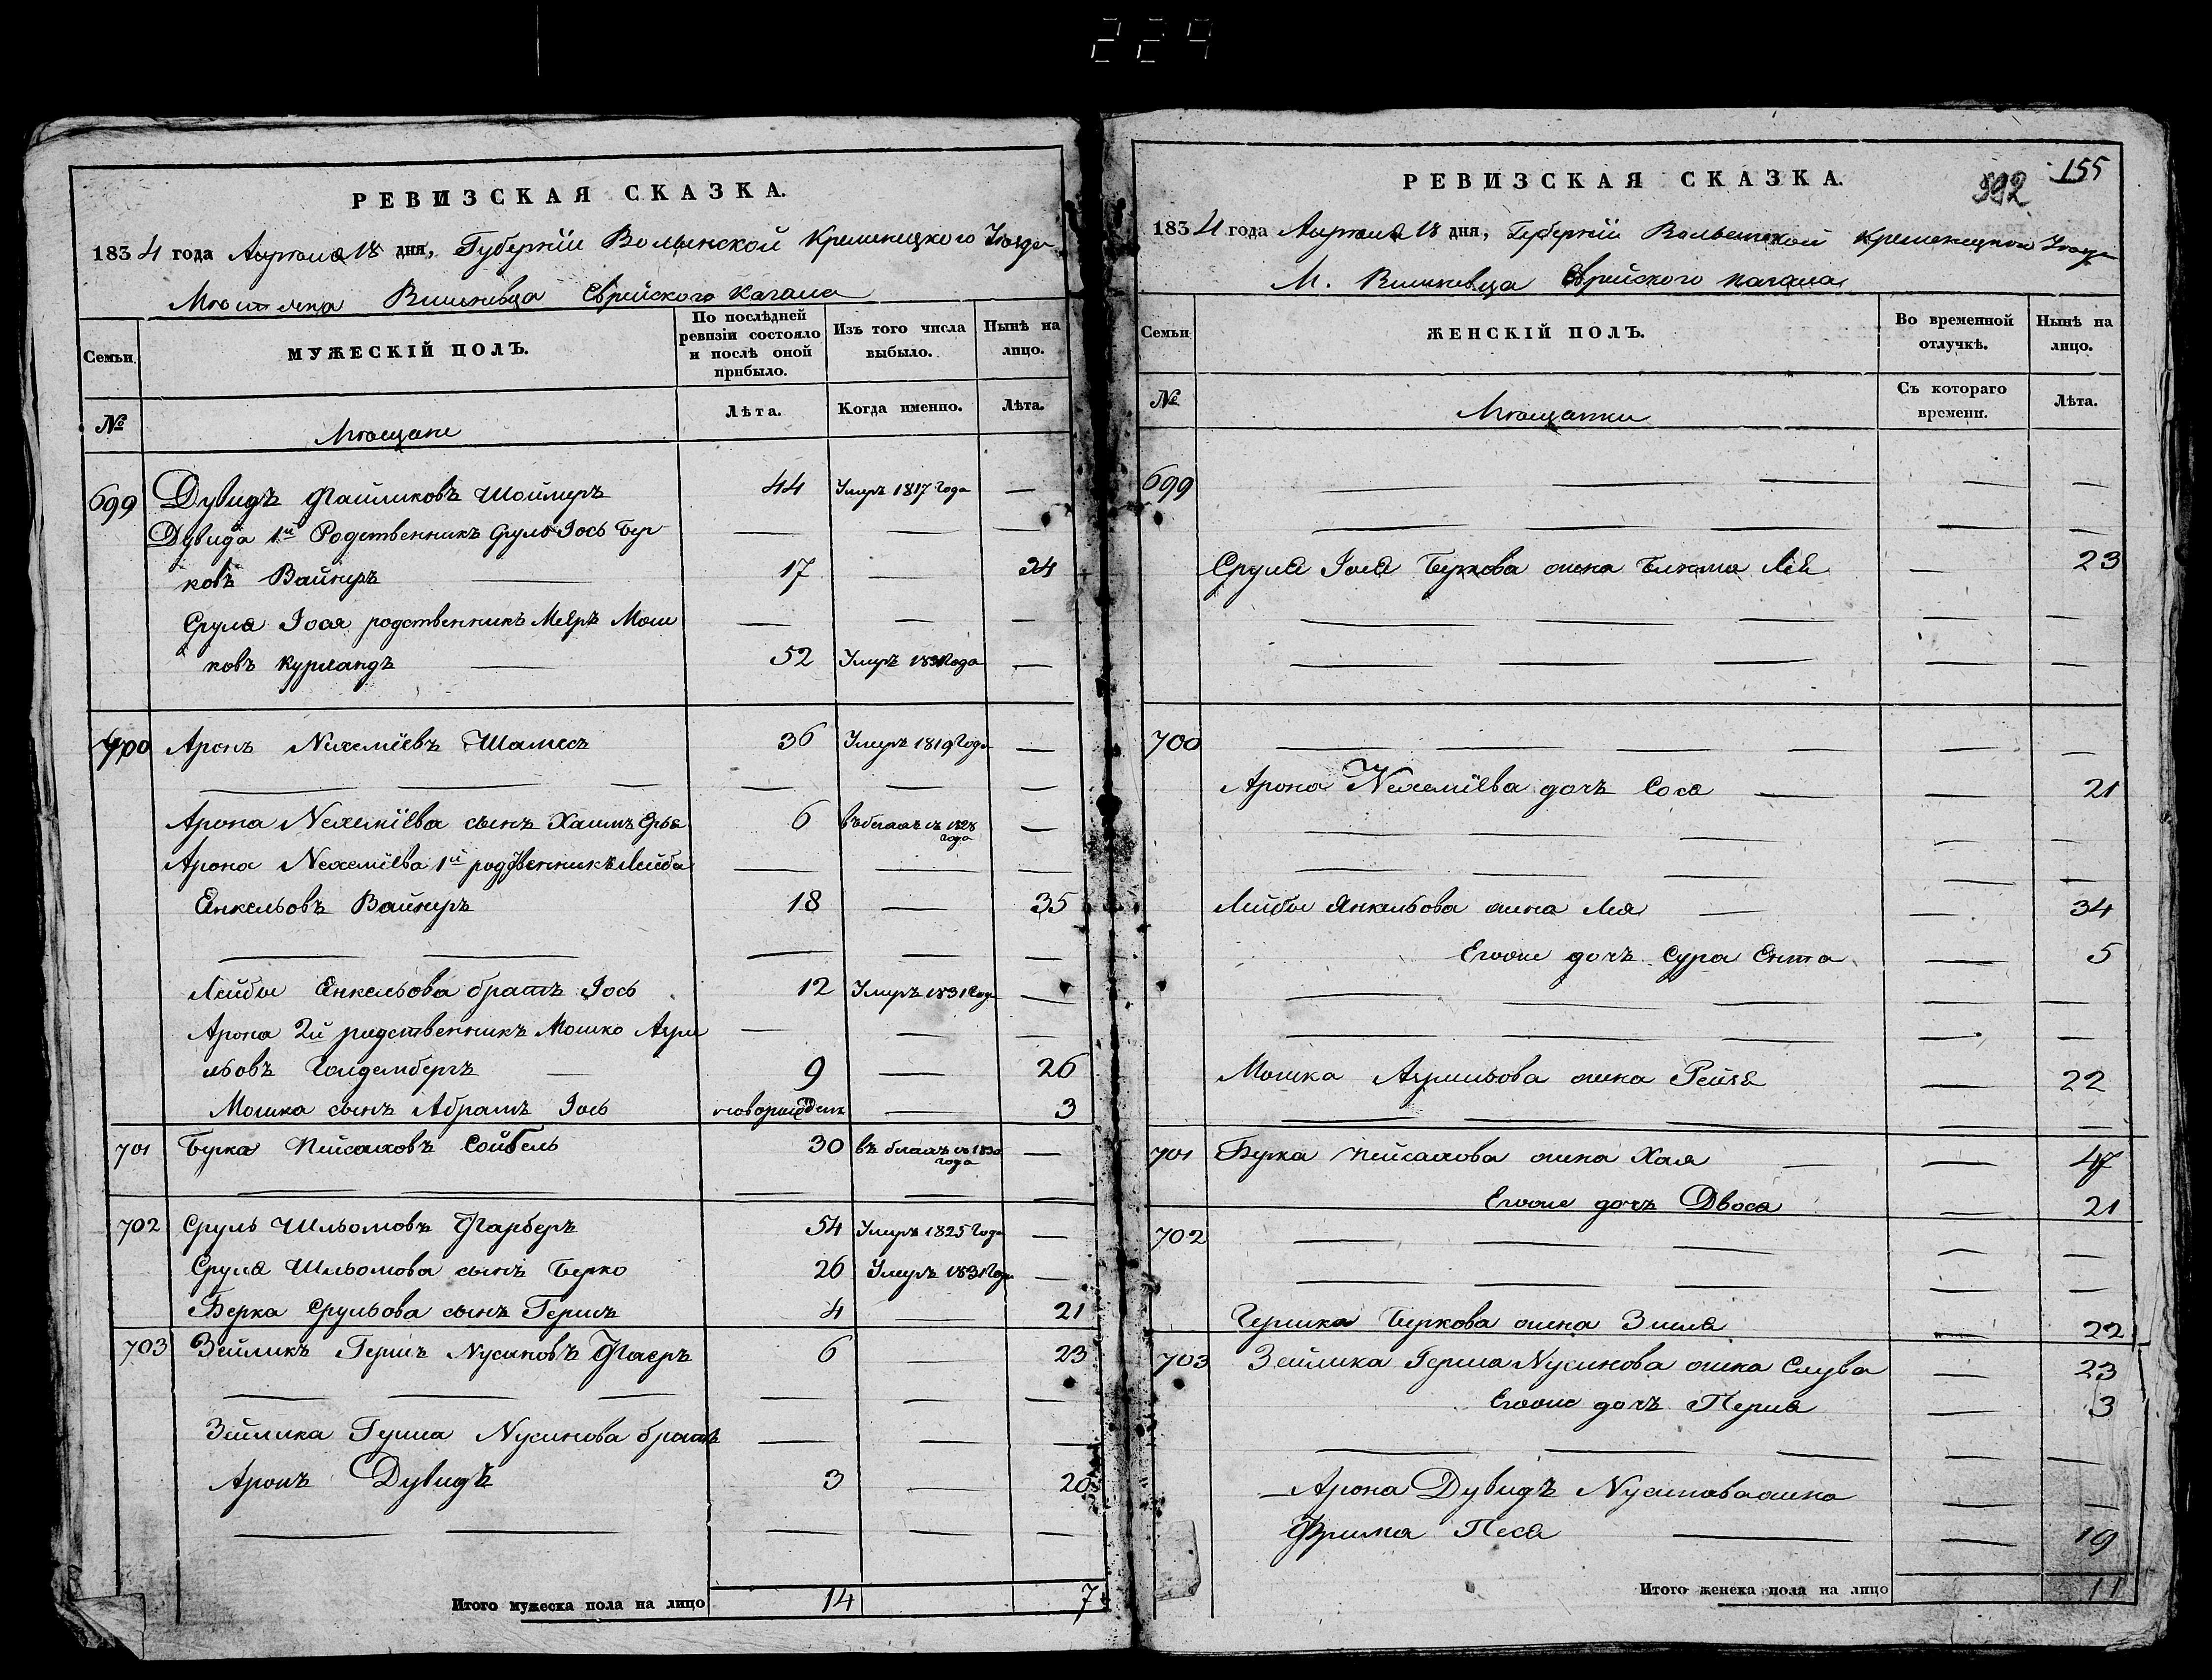 224
РЕВИЗСКАЯ СКАЗКА.
1834 года Апрѣля 18 дня, Губерніи Волынской Кременецкого Уѣзда
Мѣстечка Вишневца Еврейского Кагала
Семьи.
МУЖЕСКІЙ ПОЛЪ.
По послѣдней ревизіи состояло и послѣ оной прибыло.
Изъ того числа выбыло.
Нынѣ на лицо.
№
Мѣщане
Лѣта.
Когда именно.
Лѣта.
699 Дувидъ Файликовъ Шоймеръ 44 Умеръ 1817 года —
Дувида 1й Родственникъ Сруль Іось Бер
ковъ Вайнеръ 17 — 34
Сруля Іося родственникъ Мееръ Мош
ковъ Курландъ 52 Умеръ 1831 года —
700 Аронъ Нехеміевъ Шамесъ 36 Умеръ 1819 Года —
Арона Нехеміева сынъ Хаимъ 6 въ бегахъ съ 1828 года —
Арона Нехеміева 1й родственникъ Лейба
Енкельовъ Вайнеръ 18 — 35
Лейбы Енкельова братъ Іось 12 Умеръ 1831 Года —
Арона 2й родственникъ Мошко
льовъ Голдембергъ 9 — 26
Мошка сынъ Абрамъ Іось новорожденъ — 3
701 Берка Пейсаховъ Сойбель 30 въ бегахъ съ 1830 года —
702 Сруль Шльомовъ Фарберъ 54 Умеръ 1825 Года —
Сруля Шльомова сынъ Берко 26 Умеръ 1831 Года —
Берка Срульова сынъ Гершъ 4 — 21
703 Зейликъ Гершъ Нусиновъ Фаеръ 6 — 23
Зейлика Герша Нусинова братъ
Аронъ Дувидъ 3 — 20
Итого мужеска пола на лицо 14 7
РЕВИЗСКАЯ СКАЗКА.
392 155
1834 года Апрѣля 18 дня, Губерніи Волынской Кременецкого Уѣзда
М. Вишневца Еврейского Кагала
Семьи
ЖЕНСКІЙ ПОЛЪ.
Во временной отлучкѣ.
Нынѣ на лицо.
№
Мѣщанки
Съ котораго времени.
Лѣта.
699
Сруля Іося Беркова жена Блюма Лея — 23
700
Арона Нехеміева дочь Сося — 21
Лейбы Янкельова жена Лея — 34
Егоже дочь Сура Ента — 5
Мошка жена Рейзя — 22
701 Берка Пейсахова жена Хая — 47
Егоже дочь Двося — 21
702
Гершка Беркова жена Зисля — 22
703 Зейлика Герша Нусинова жена Слува — 23
Егоже дочь Перля — 3
Арона Дувидъ Нусинова жена
Фрима Песя — 19
Итого женска пола на лицо 11